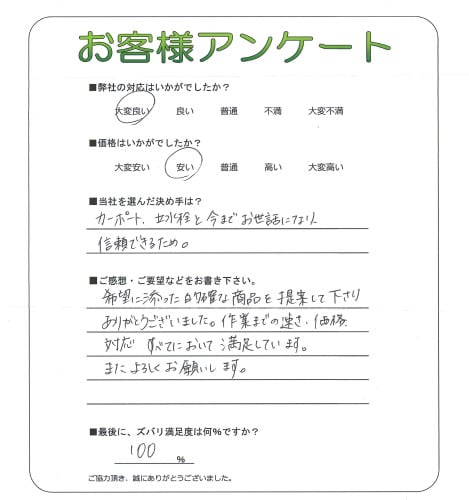 お客様アンケート
■弊社の対応はいかがでしたか？
大変良い 良い 普通 不満 大変不満
■価格はいかがでしたか？
大変安い 安い 普通 高い 大変高い
■当社を選んだ決め手は？
カーポート、立水栓と今までお世話になり
信頼できるため。
■ご感想・ご要望などをお書き下さい。
希望に添った的確な商品を提案して下さり
ありがとうございました。作業までの速さ、価格、
対応 すべてにおいて満足しています。
またよろしくお願いします。
■最後に、ズバリ満足度は何％ですか？
100 %
ご協力頂き、誠にありがとうございました。